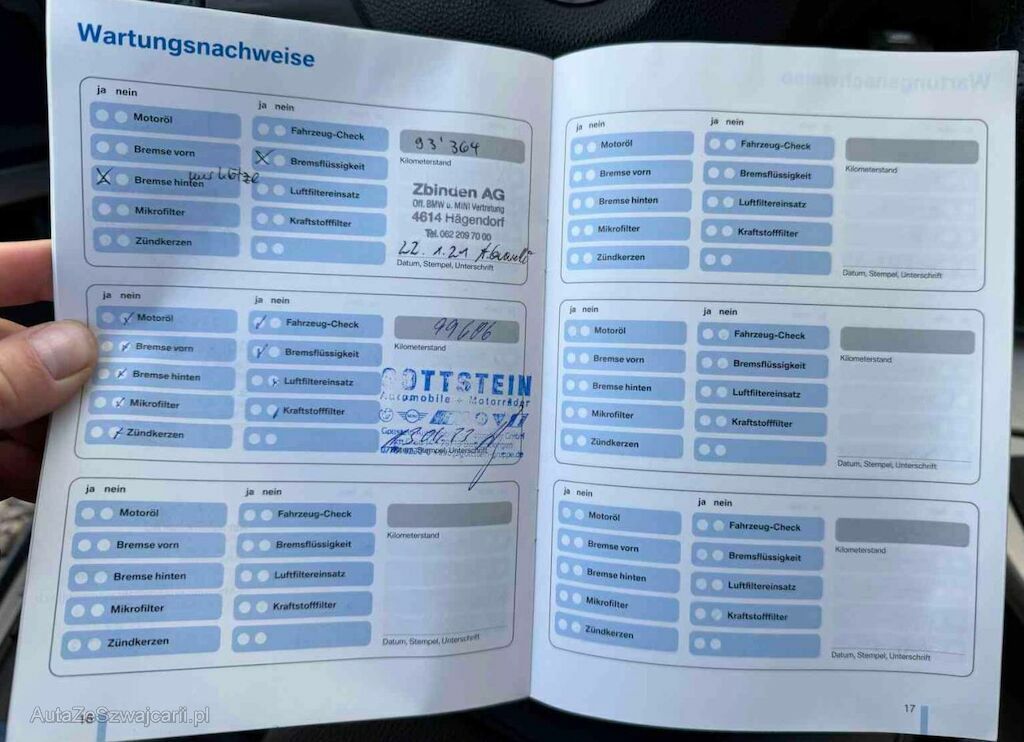 Wartungsnachweise
ja nein
Motoröl
Bremse vorn
Bremse hinten
Mikrofilter
Zündkerzen
ja nein
Fahrzeug-Check
Bremsflüssigkeit
Luftfiltereinsatz
Kraftstofffilter
93'364
Kilometerstand
Zbinden AG
Off. BMW u. MINI Vertretung
4614 Hägendorf
Tel. 062 209 70 00
22.1.21
Datum, Stempel, Unterschrift
ja nein
Motoröl
Bremse vorn
Bremse hinten
Mikrofilter
Zündkerzen
ja nein
Fahrzeug-Check
Bremsflüssigkeit
Luftfiltereinsatz
Kraftstofffilter
99686
Kilometerstand
GOTTSTEIN
Automobile + Motorräder
Stempel, Unterschrift
ja nein
Motoröl
Bremse vorn
Bremse hinten
Mikrofilter
Zündkerzen
ja nein
Fahrzeug-Check
Bremsflüssigkeit
Luftfiltereinsatz
Kraftstofffilter
Kilometerstand
Datum, Stempel, Unterschrift
16
ja nein
Motoröl
Bremse vorn
Bremse hinten
Mikrofilter
Zündkerzen
ja nein
Fahrzeug-Check
Bremsflüssigkeit
Luftfiltereinsatz
Kraftstofffilter
Kilometerstand
Datum, Stempel, Unterschrift
ja nein
Motoröl
Bremse vorn
Bremse hinten
Mikrofilter
Zündkerzen
ja nein
Fahrzeug-Check
Bremsflüssigkeit
Luftfiltereinsatz
Kraftstofffilter
Kilometerstand
Datum, Stempel, Unterschrift
ja nein
Motoröl
Bremse vorn
Bremse hinten
Mikrofilter
Zündkerzen
ja nein
Fahrzeug-Check
Bremsflüssigkeit
Luftfiltereinsatz
Kraftstofffilter
Kilometerstand
Datum, Stempel, Unterschrift
17
AutaZeSzwajcarii.pl